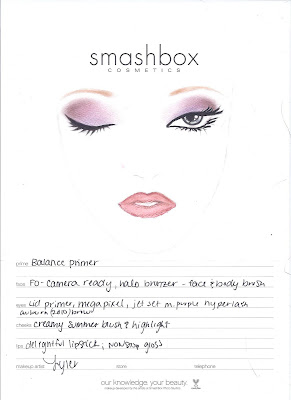 smashbox
COSMETICS
prime Balance primer
face FO - camera ready, halo bronzer - face & body brush
eyes Lid primer, megapixel, jet set m. purple hyperlash
auburn/ /brown
cheeks creamy summer blush & highlight
lips delightful lipstick, nonstop gloss
makeup artist Tyler store telephone
our knowledge. your beauty.